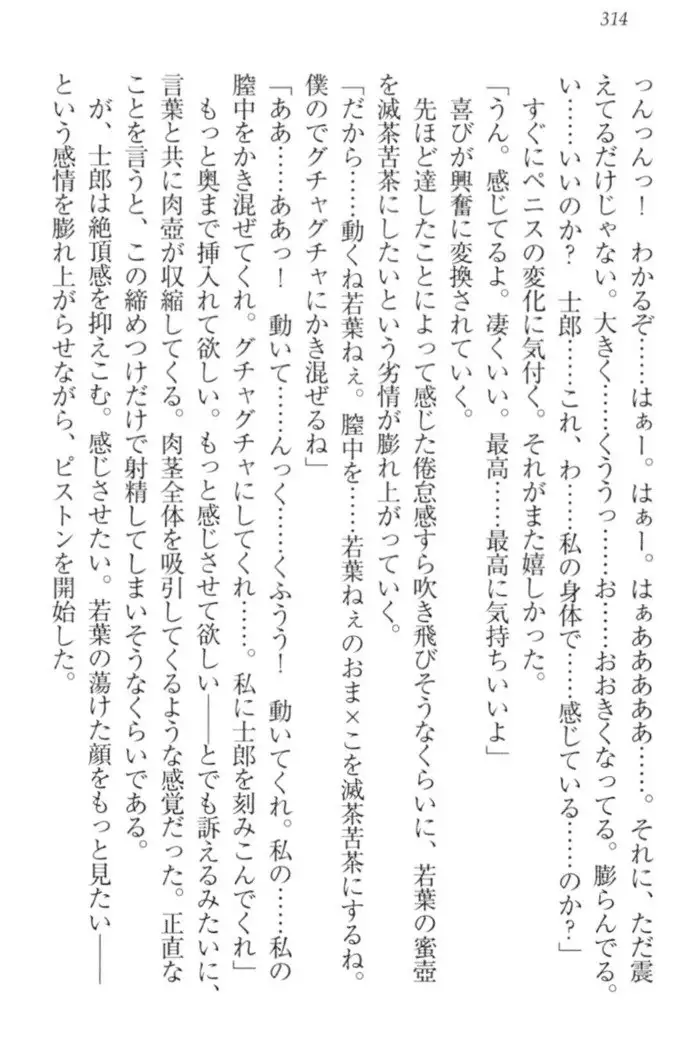 314
っんっんっ！　わかるぞ……はぁー。はぁー。はぁああああ……。それに、ただ震
えてるだけじゃない。大きく……くううっ……お……おおきくなってる。膨らんでる。
い……いいのか？　士郎……これ、わ……私の身体で……感じている……のか？」
すぐにペニスの変化に気付く。それがまた嬉しかった。
「うん。感じてるよ。凄くいい。最高……最高に気持ちいいよ」
喜びが興奮に変換されていく。
先ほど達したことによって感じた倦怠感すら吹き飛びそうなくらいに、若葉の蜜壺
を滅茶苦茶にしたいという劣情が膨れ上がっていく。
「だから……動くね若葉ねぇ。膣中を……若葉ねぇのおま×こを滅茶苦茶にするね。
僕のでグチャグチャにかき混ぜるね」
「ああ……ああっ！　動いて……んっく……くふうう！　動いてくれ。私の……私の
膣中をかき混ぜてくれ。グチャグチャにしてくれ……。私に士郎を刻みこんでくれ」
もっと奥まで挿入れて欲しい。もっと感じさせて欲しい――とでも訴えるみたいに、
言葉と共に肉壺が収縮してくる。肉茎全体を吸引してくるような感覚だった。正直な
ことを言うと、この締めつけだけで射精してしまいそうなくらいである。
が、士郎は絶頂感を抑えこむ。感じさせたい。若葉の蕩けた顔をもっと見たい――
という感情を膨れ上がらせながら、ピストンを開始した。